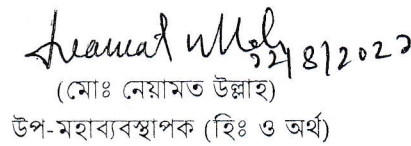 22/8/2022
(মোঃ নেয়ামত উল্লাহ)
উপ-মহাব্যবস্থাপক (হিঃ ও অর্থ)